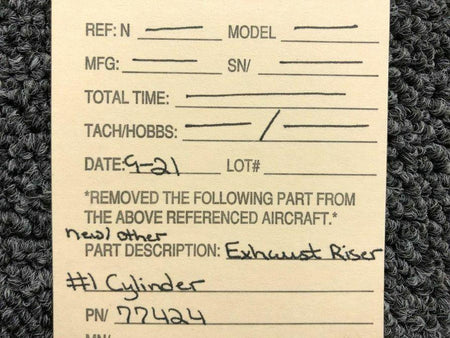 REF: N — MODEL —
MFG: — SN/ —
TOTAL TIME: —
TACH/HOBBS: — / —
DATE: 9-21 LOT#
*REMOVED THE FOLLOWING PART FROM
THE ABOVE REFERENCED AIRCRAFT.*
new/other
PART DESCRIPTION: Exhaust Riser
#1 Cylinder
PN/ 77424